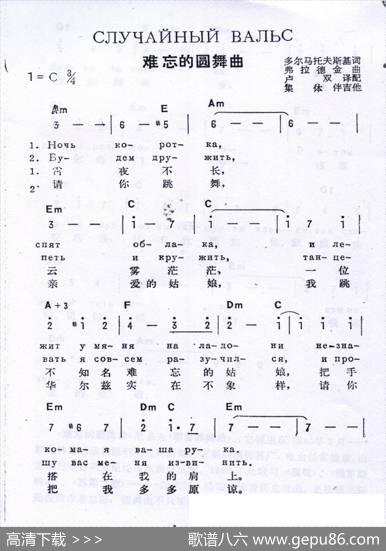 СЛУЧАЙНЫЙ ВАЛЬС
难忘的圆舞曲
多尔马托夫斯基词
弗拉德金 曲
卢 双 译配
集 体 伴吉他
1=C 3/4
Em E Am
3 — — | 6 — #5 | 6 — — | 6 — — |
1. Ночь ко- рот- ка,
2. Бу- дем дру- жить,
1. 宵 夜 不 长,
2. 请 你 跳 舞,
Em C C
3 — — | i — 7 | i — — | i 7 i |
спят об- ла- ка, и ле-
петь и кру- жить, тан- це-
云 雾 茫 茫, 一 位
亲 爱 的 姑 娘, 我 跳
A+3 F Dm C
2 #1 2 | 4 — 3 2 | 2 — i | i 7 i |
жит у мяня на ла- до- ни не- зна-
вать я сов- сем ра- зу- чил- ся, и про-
不 知 名 难 忘 的 姑 娘, 把 手
华 尔 兹 实 在 不 象 样, 请 你
Em Dm C Em
7 #6 7 | 2 i· 7 | 7 — — | 7 — — |
ко- ма- я ва- ша ру- ка.
шу вас ме- ня из- ви- нить.
搭 在 我 的 肩 上。
把 我 多 多 原 谅。
高清下载 >>> 歌谱八六 www.gepu86.com